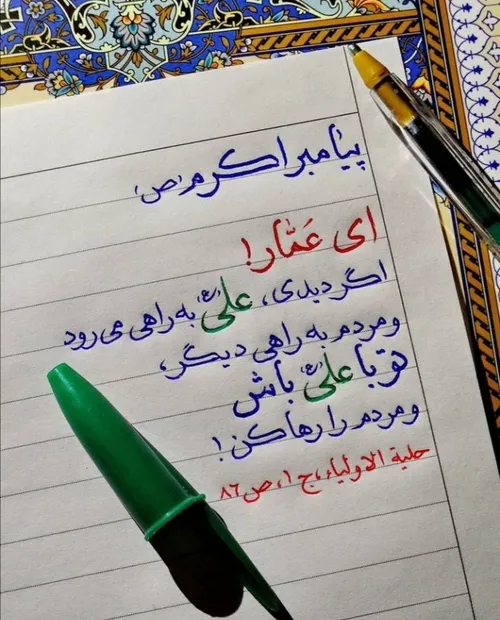 پیامبر اکرم (ص)
ای عَمّار!
اگر دیدی، علی (ع) به راهی می‌رود
و مردم به راهی دیگر،
تو با علی (ع) باش
و مردم را رها کن!
حلیة الاولیاء، ج ۱، ص ۸۶